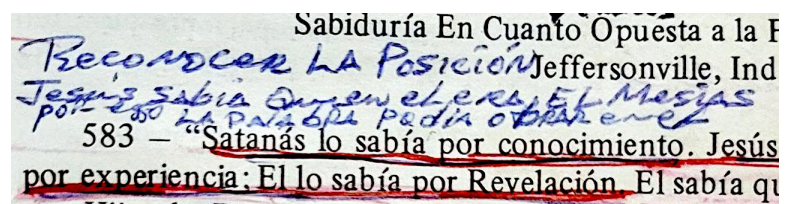 Sabiduría En Cuanto Opuesta a la F
RECONOCER LA POSICIÓN Jeffersonville, Ind
Jesús sabía Quien el era, EL Mesías
por eso LA PALABRA Podía OBRAR en el
583 – “Satanás lo sabía por conocimiento. Jesús
por experiencia; El lo sabía por Revelación. El sabía qu